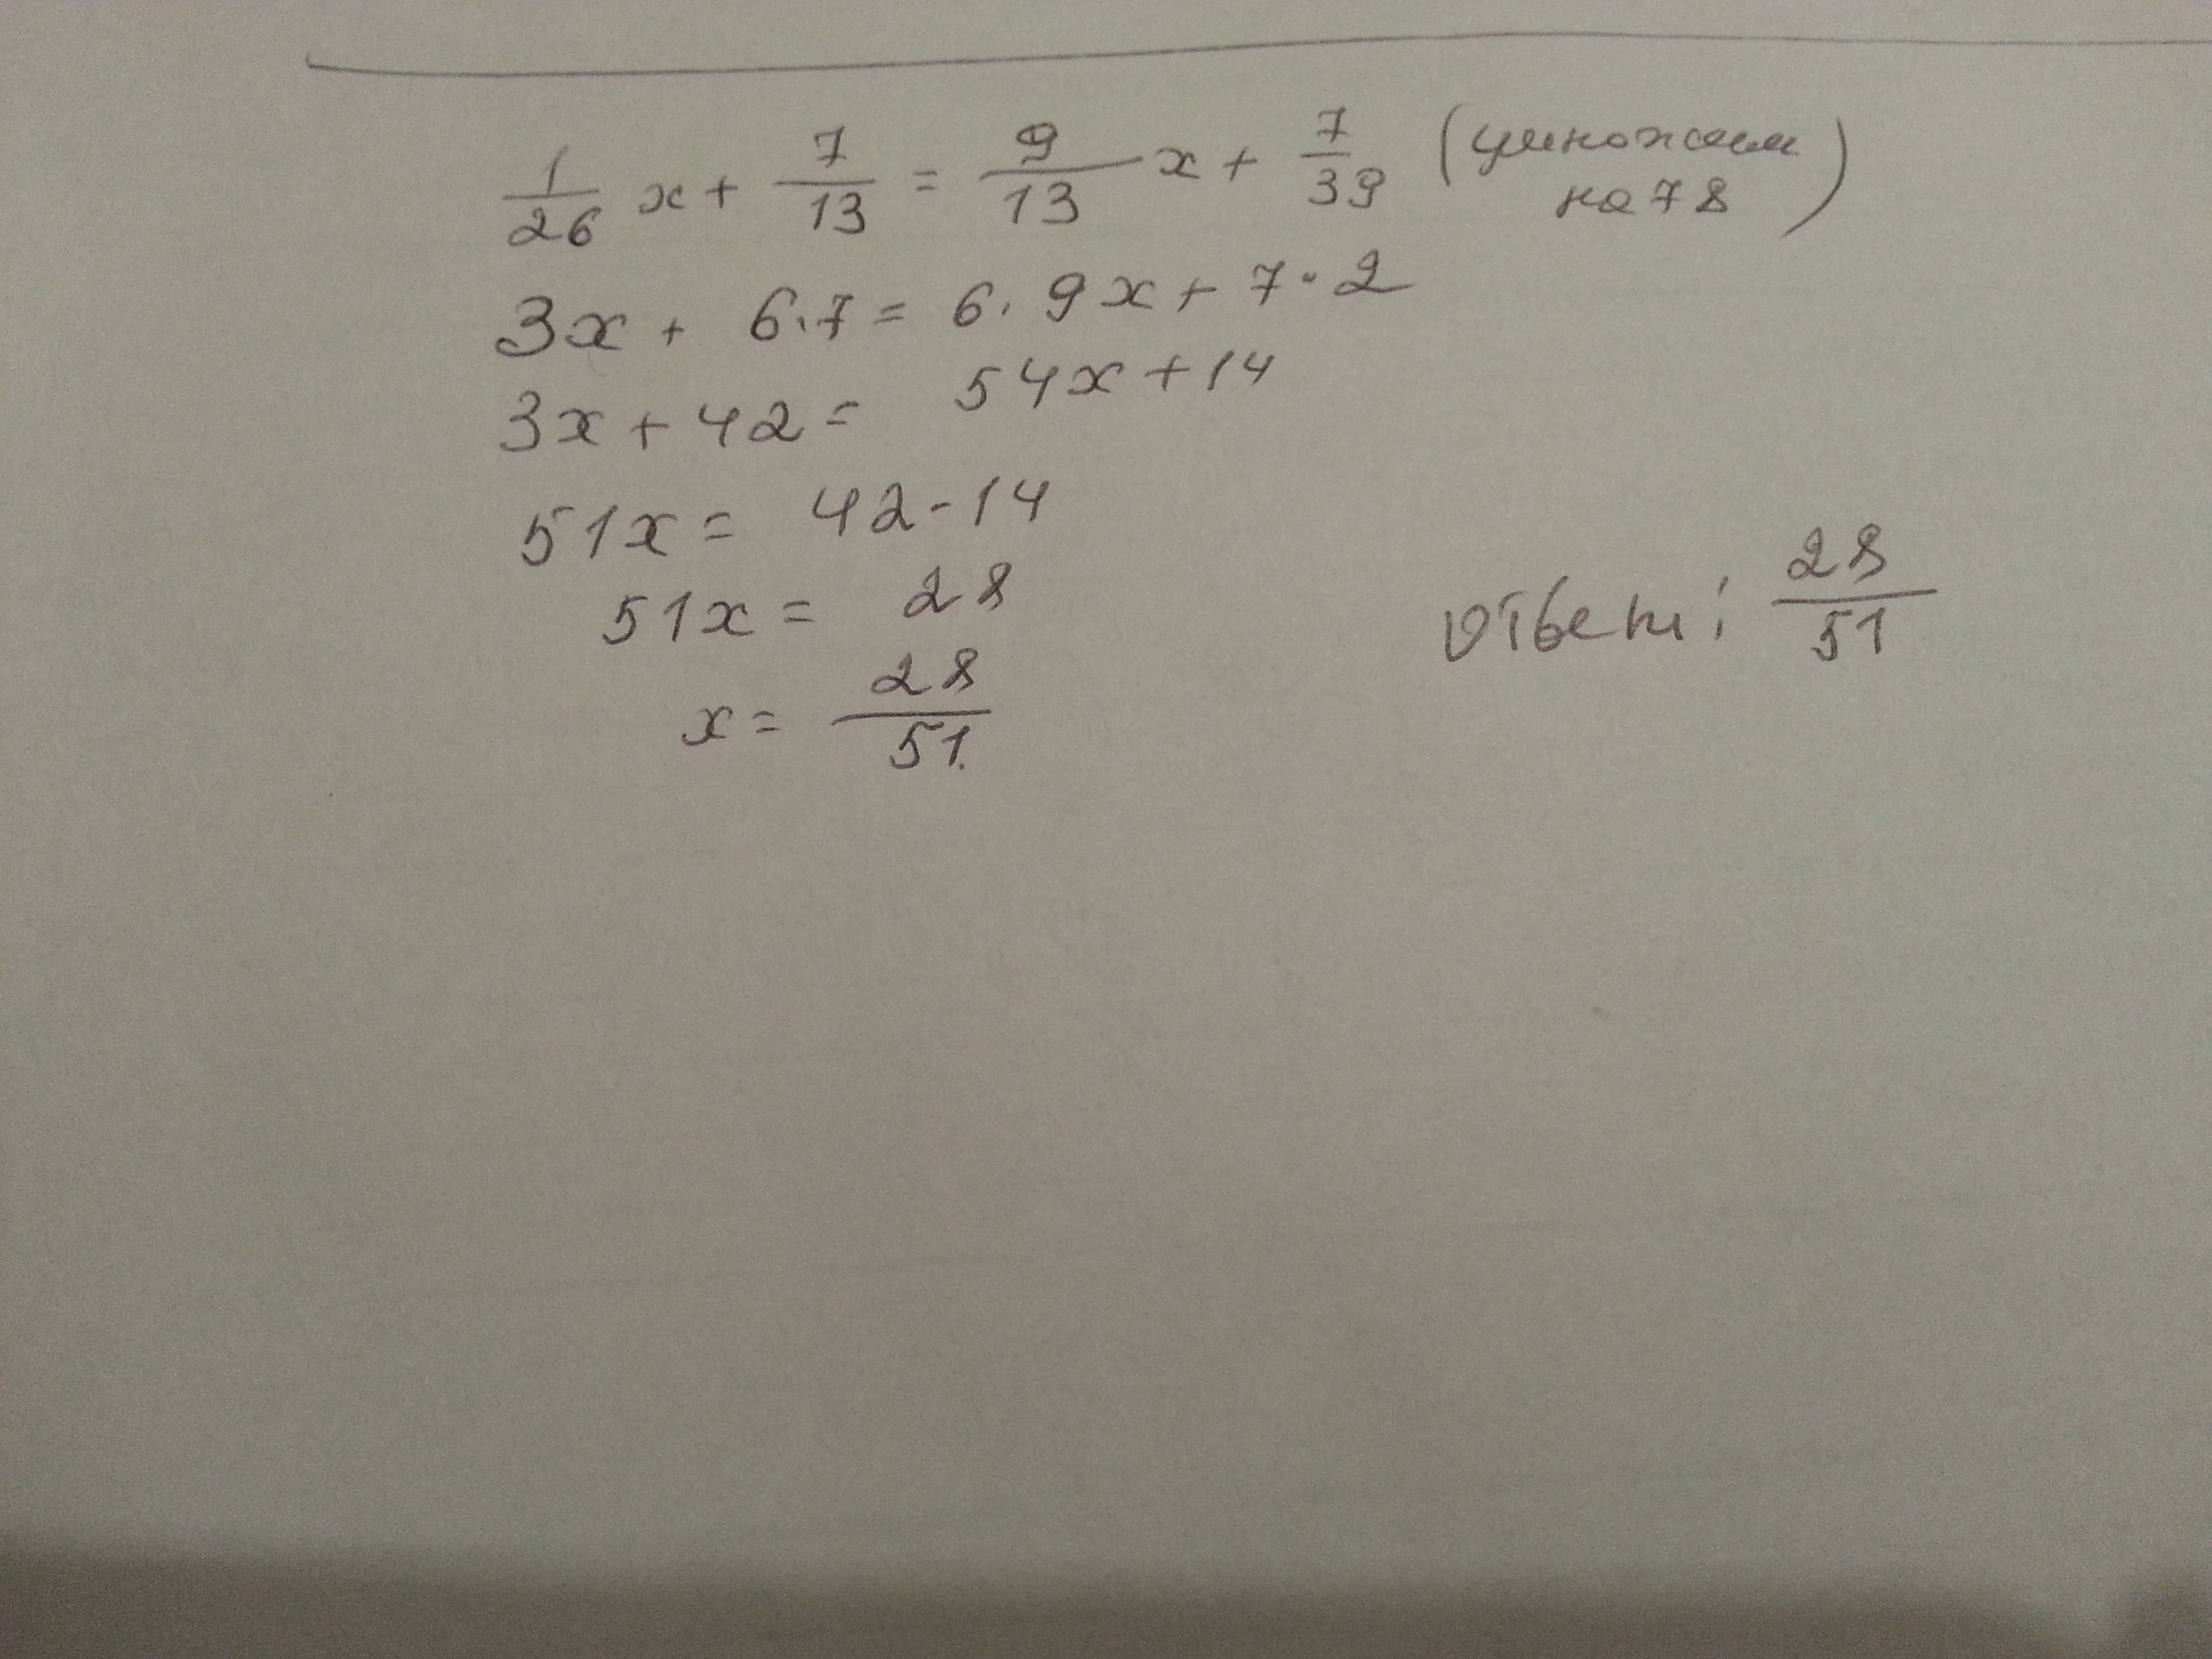 1/26 x + 7/13 = 9/13 x + 7/39 (умножаем на 78)
3x + 6·7 = 6·9x + 7·2
3x + 42 = 54x + 14
51x = 42 - 14
51x = 28
x = 28/51.
Ответ: 28/51